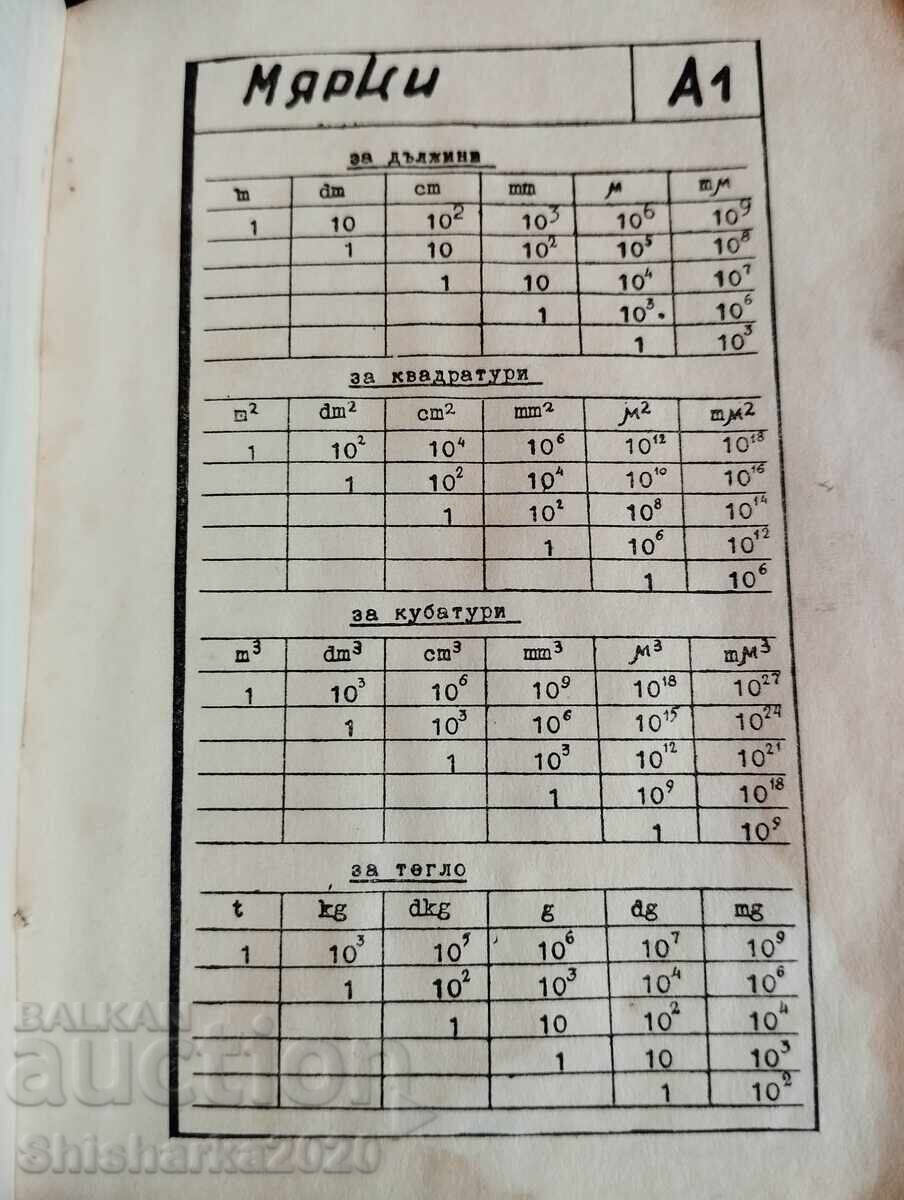 Мярки A1
за дължина
m dm cm mm μ mμ
1 10 10² 10³ 10⁶ 10⁹
1 10 10² 10⁵ 10⁸
1 10 10⁴ 10⁷
1 10³. 10⁶
1 10³
за квадратури
m² dm² cm² mm² μ² mμ²
1 10² 10⁴ 10⁶ 10¹² 10¹⁸
1 10² 10⁴ 10¹⁰ 10¹⁶
1 10² 10⁸ 10¹⁴
1 10⁶ 10¹²
1 10⁶
за кубатури
m³ dm³ cm³ mm³ μ³ mμ³
1 10³ 10⁶ 10⁹ 10¹⁸ 10²⁷
1 10³ 10⁶ 10¹⁵ 10²⁴
1 10³ 10¹² 10²¹
1 10⁹ 10¹⁸
1 10⁹
за тегло
t kg dkg g dg mg
1 10³ 10⁵ 10⁶ 10⁷ 10⁹
1 10² 10³ 10⁴ 10⁶
1 10 10² 10⁴
1 10 10³
1 10²
BALKAN
auction
Shisharka2020